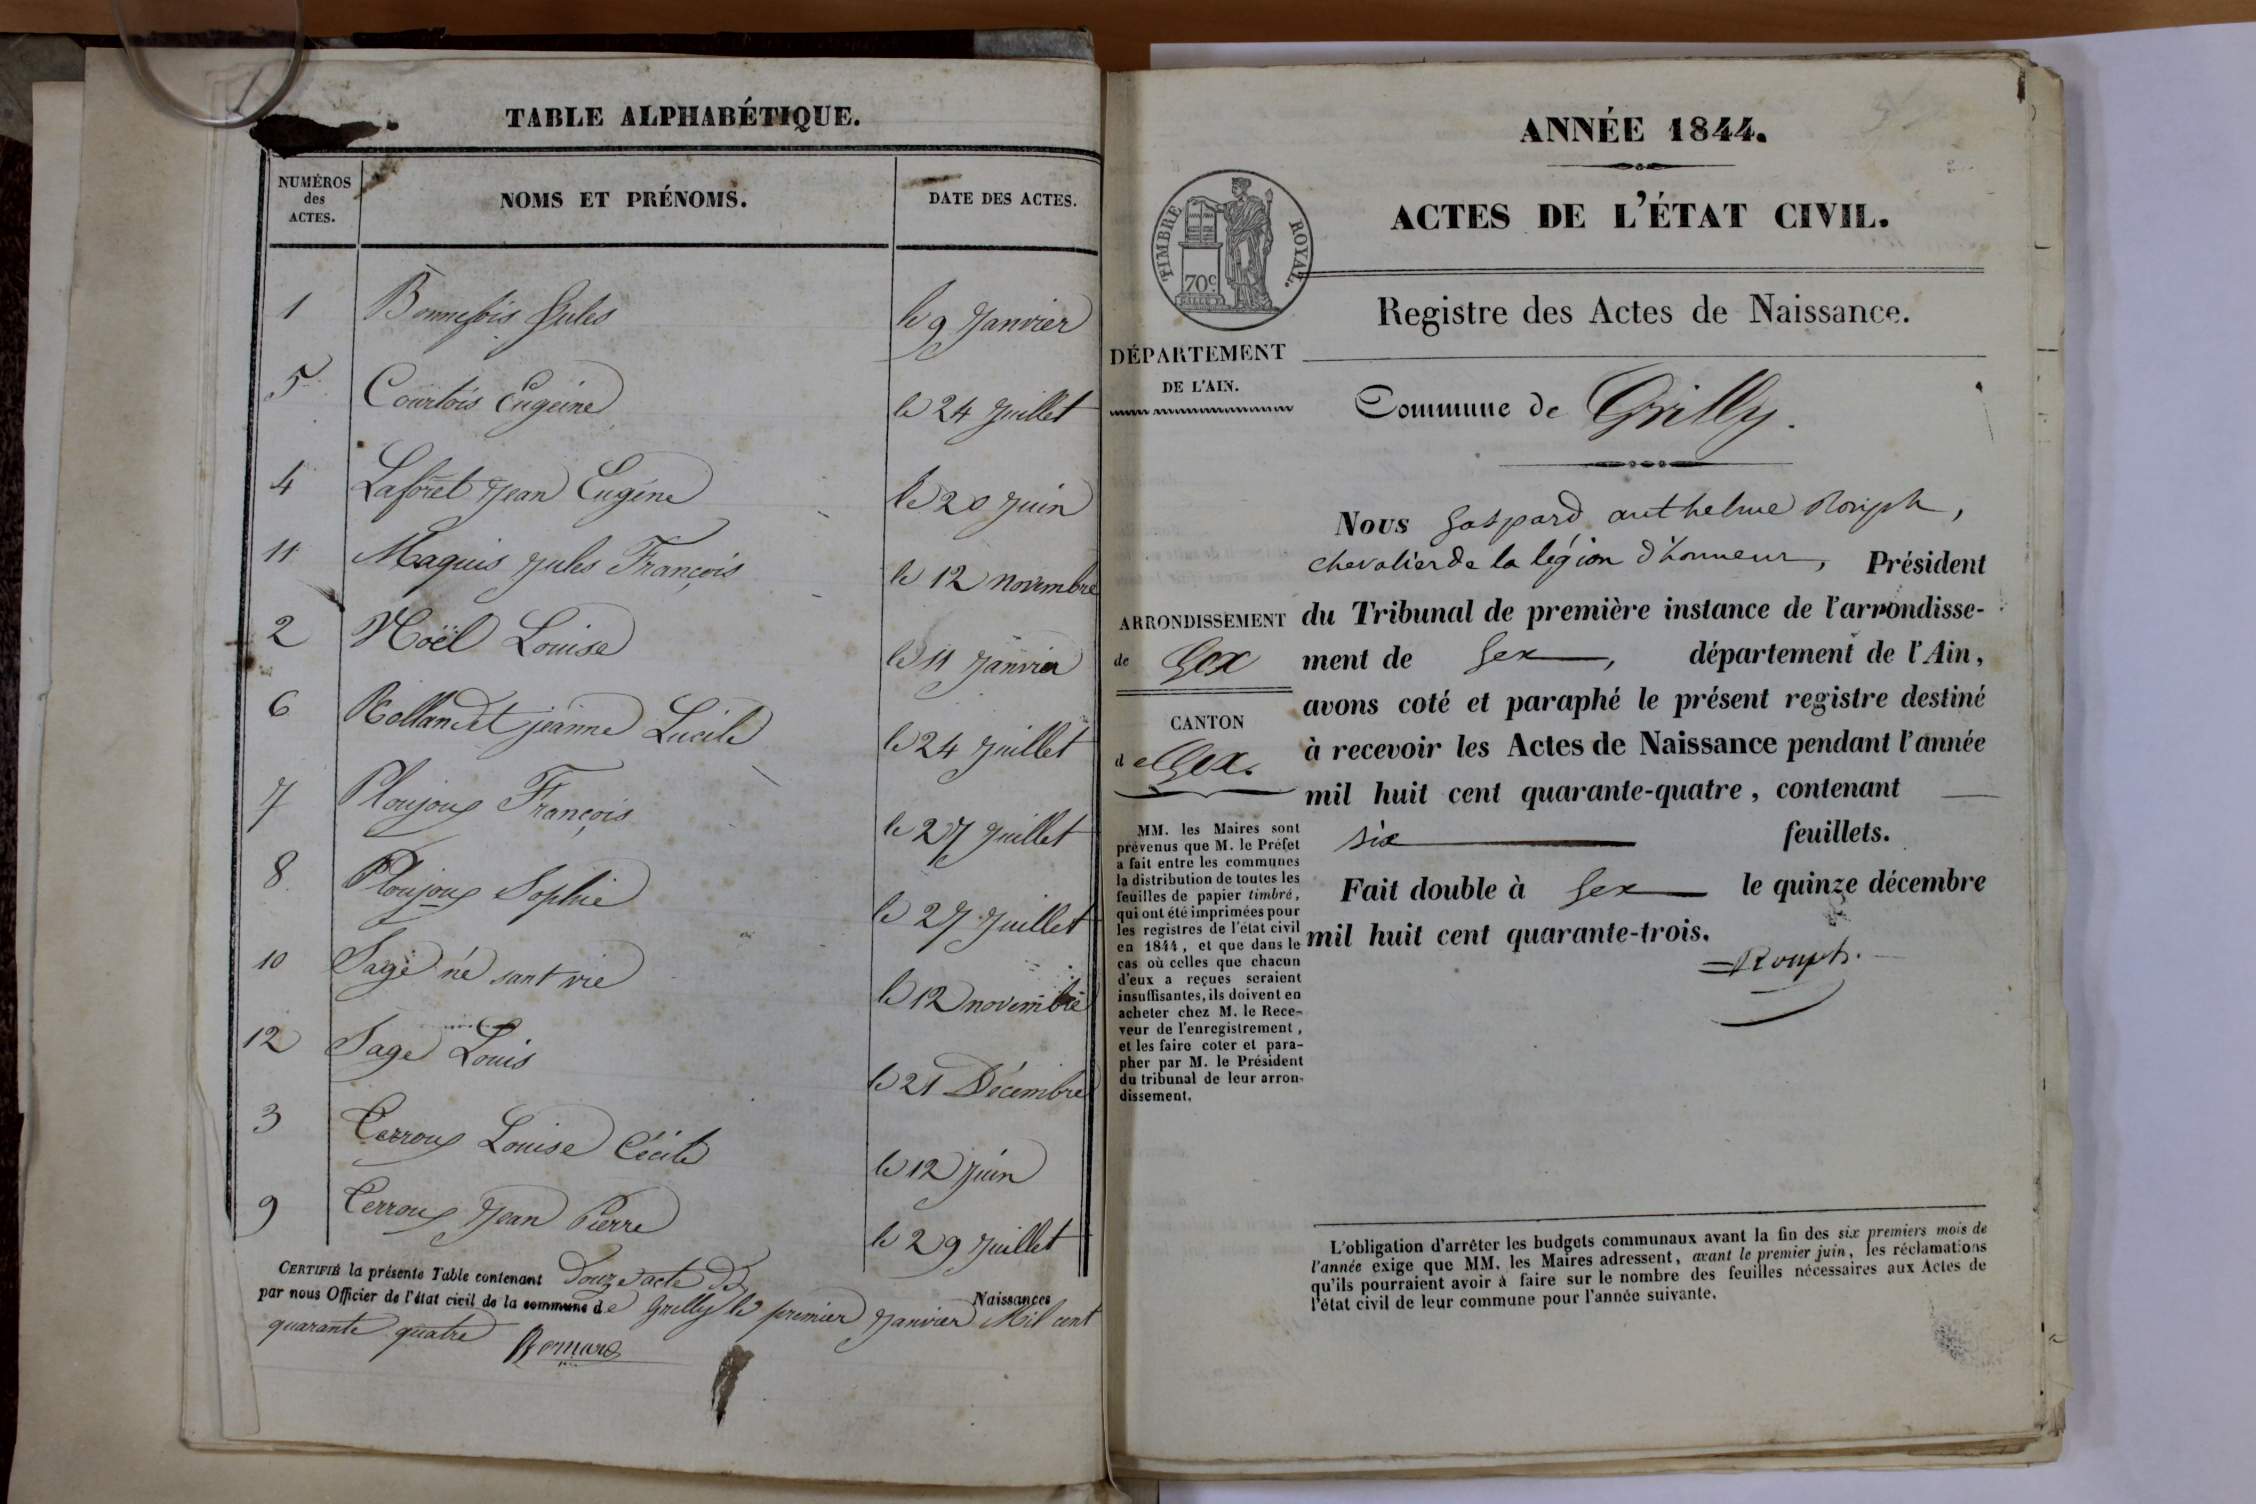 TABLE ALPHABÉTIQUE.
NUMÉROS
des
ACTES.
NOMS ET PRÉNOMS.
DATE DES ACTES.
1 Bonnefois Jules le 9 Janvier
5 Courtois Eugéine le 24 Juillet
4 Laforet Jean Eugéne le 20 Juin
11 Maquis Jules François le 12 novembre
2 Noël Louise le 11 Janvier
6 Rollandet jeanne Lucile le 24 Juillet
7 Ploujoux François le 27 Juillet
8 Ploujoux Sophie le 27 Juillet
10 Sage né sant vie le 12 novembre
12 Sage Louis le 21 Décembre
3 Perroux Louise Cécile le 12 Juin
9 Perroux Jean Pierre le 29 Juillet
CERTIFIÉ la présente Table contenant Douze acte De Naissances
par nous Officier de l'état civil de la commune de Grilly le premier Janvier Mil cent
quarante quatre
ANNÉE 1844.
ACTES DE L'ÉTAT CIVIL.
TIMBRE ROYAL.
70c
Registre des Actes de Naissance.
DÉPARTEMENT
DE L'AIN.
Commune de Grilly.
ARRONDISSEMENT
de Gex
CANTON
de Gex.
MM. les Maires sont
prévenus que M. le Préfet
a fait entre les communes
la distribution de toutes les
feuilles de papier timbré,
qui ont été imprimées pour
les registres de l'état civil
en 1844, et que dans le
cas où celles que chacun
d'eux a reçues seraient
insuffisantes, ils doivent en
acheter chez M. le Rece-
veur de l'enregistrement,
et les faire coter et para-
pher par M. le Président
du tribunal de leur arron-
dissement.
Nous Gaspard anthelme Rouph,
chevalier de la légion d'honneur, Président
du Tribunal de première instance de l'arrondisse-
ment de Gex, département de l'Ain,
avons coté et paraphé le présent registre destiné
à recevoir les Actes de Naissance pendant l'année
mil huit cent quarante-quatre, contenant
six feuillets.
Fait double à Gex le quinze décembre
mil huit cent quarante-trois.
Rouph.
L'obligation d'arrêter les budgets communaux avant la fin des six premiers mois de
l'année exige que MM. les Maires adressent, avant le premier juin, les réclamations
qu'ils pourraient avoir à faire sur le nombre des feuilles nécessaires aux Actes de
l'état civil de leur commune pour l'année suivante.